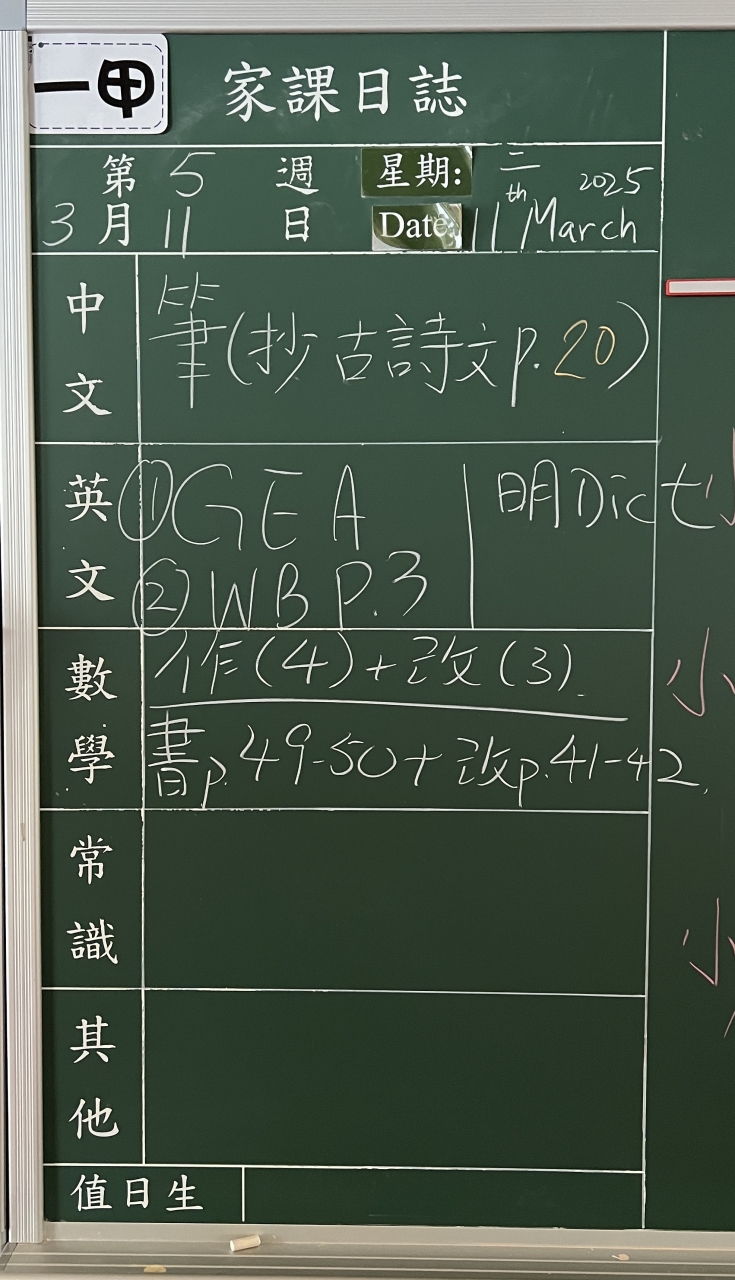 一甲 家課日誌
第 5 週 星期: 二 2025
3 月 11 日 Date: 11th March
中文 筆(抄古詩文p.20)
英文 ①GEA 明Dict
②WB P.3
數學 作(4)+改(3).
書p.49-50+改p.41-42.
常識
其他
值日生
小
小